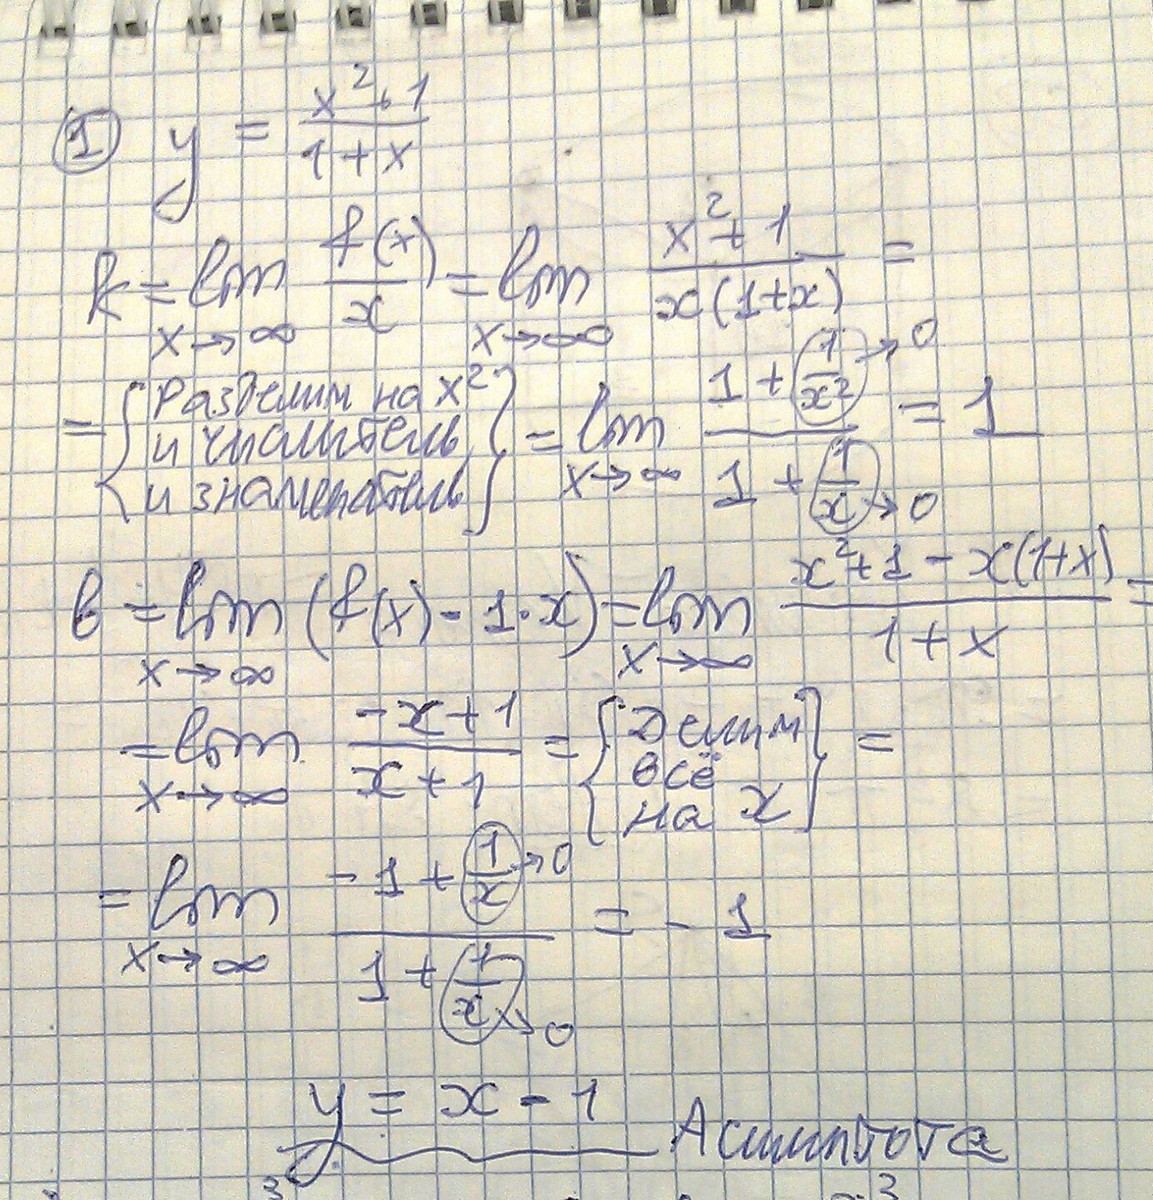 ① y = (x²+1)/(1+x)
k = lim x→∞ f(x)/x = lim x→∞ (x²+1)/(x(1+x)) =
= {Разделим на x² и числитель и знаменатель} = lim x→∞ (1 + (1/x²)→0)/(1 + (1/x)→0) = 1
b = lim x→∞ (f(x) - 1·x) = lim x→∞ (x²+1 - x(1+x))/(1+x) =
= lim x→∞ (-x+1)/(x+1) = {Делим всё на x} =
= lim x→∞ (-1 + (1/x)→0)/(1 + (1/x)→0) = -1
y = x - 1 Асимптота